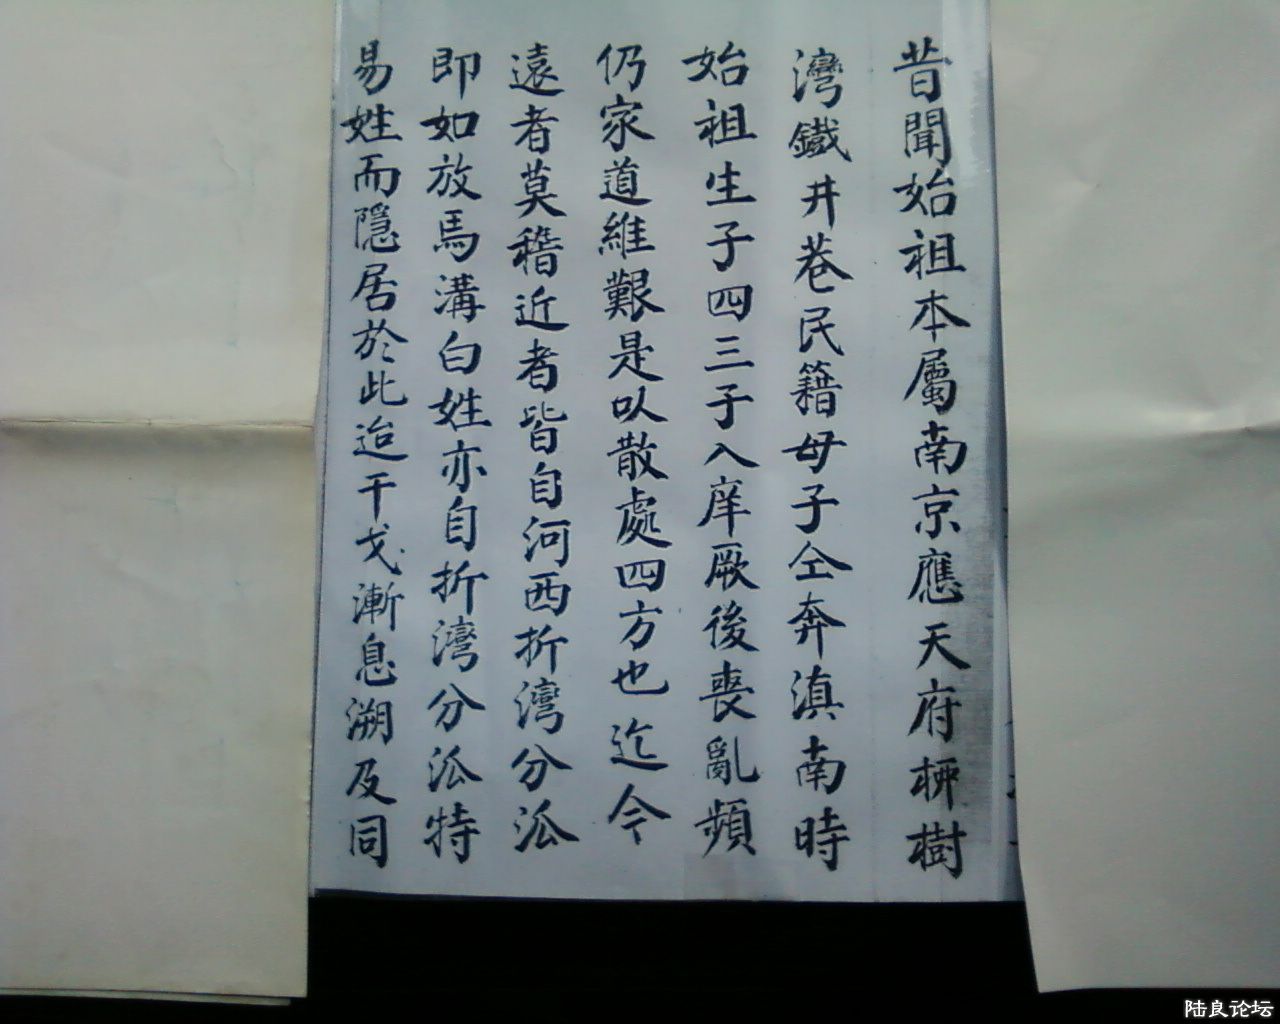 昔聞始祖本屬南京應天府栁樹
灣鐵井巷民籍母子仝奔滇南時
始祖生子四三子入庠厥後喪亂頻
仍家道維艱是以散處四方也迄今
遠者莫稽近者皆自河西折灣分派
即如放馬溝白姓亦自折灣分派特
易姓而隱居於此迨干戈漸息溯及同
陆良论坛